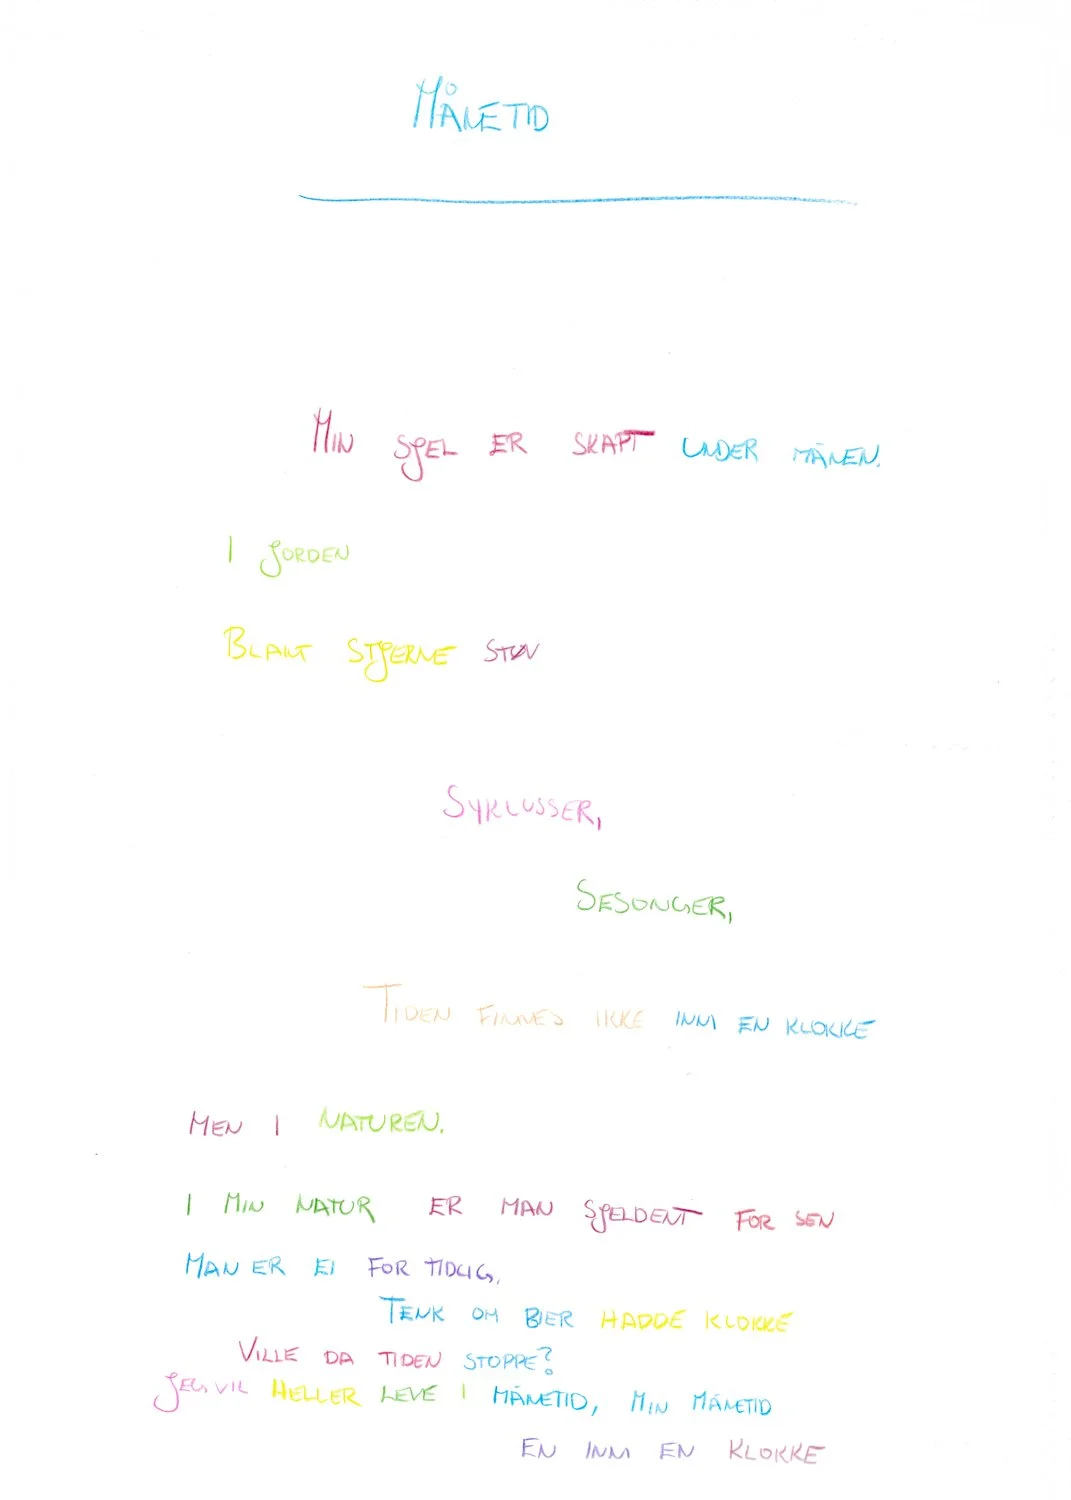 MÅNETID
MIN SJEL ER SKAPT UNDER MÅNEN.
I JORDEN
BLANT STJERNE STØV
SYKLUSSER,
SESONGER,
TIDEN FINNES IKKE INNI EN KLOKKE
MEN I NATUREN.
I MIN NATUR ER MAN SJELDENT FOR SEN
MAN ER EI FOR TIDLIG,
TENK OM BIER HADDE KLOKKE
VILLE DA TIDEN STOPPE?
JEG VIL HELLER LEVE I MÅNETID, MIN MÅNETID
EN INNI EN KLOKKE